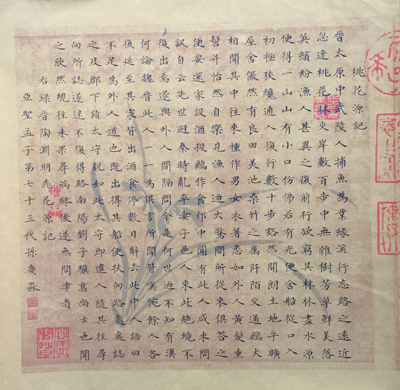 桃花源記
晉太原中武陵人捕魚為業緣溪行忘路之遠近
忽逢桃花林夾岸數百步中無雜樹芳草鮮美落
英繽紛漁人甚異之復前行欲窮其林林盡水源
便得一山山有小口仿佛若有光便舍船從口入
初極狹纔通人復行數十步豁然開朗土地平曠
屋舍儼然有良田美池桑竹之属阡陌交通雞犬
相聞其中往來種作男女衣著悉如外人黃髮垂
髫并怡然自樂見漁人迺大驚問所從來俱答之
便要還家設酒殺雞作食邨中聞有此人咸來問
訊自云先世避秦時亂率妻子邑人來此絕境不
復出焉遂與外人間隔問今是何世迺不知有漢
何論魏晉此人一一為具言所聞皆歎惋餘人各
復延至其家皆出酒食停數日辭去此中人語曰
不足為外人道也既出得其船便扶向路處處誌
之及郡下詣太守說如此太守即遣人隨其往尋
向所誌遂迷不復得路南陽劉子驥高尚士也聞
之欣然規往未果尋病終後遂無問津者
右錄晉陶淵明桃花源記
亞聖孟子第七十三代孫慶